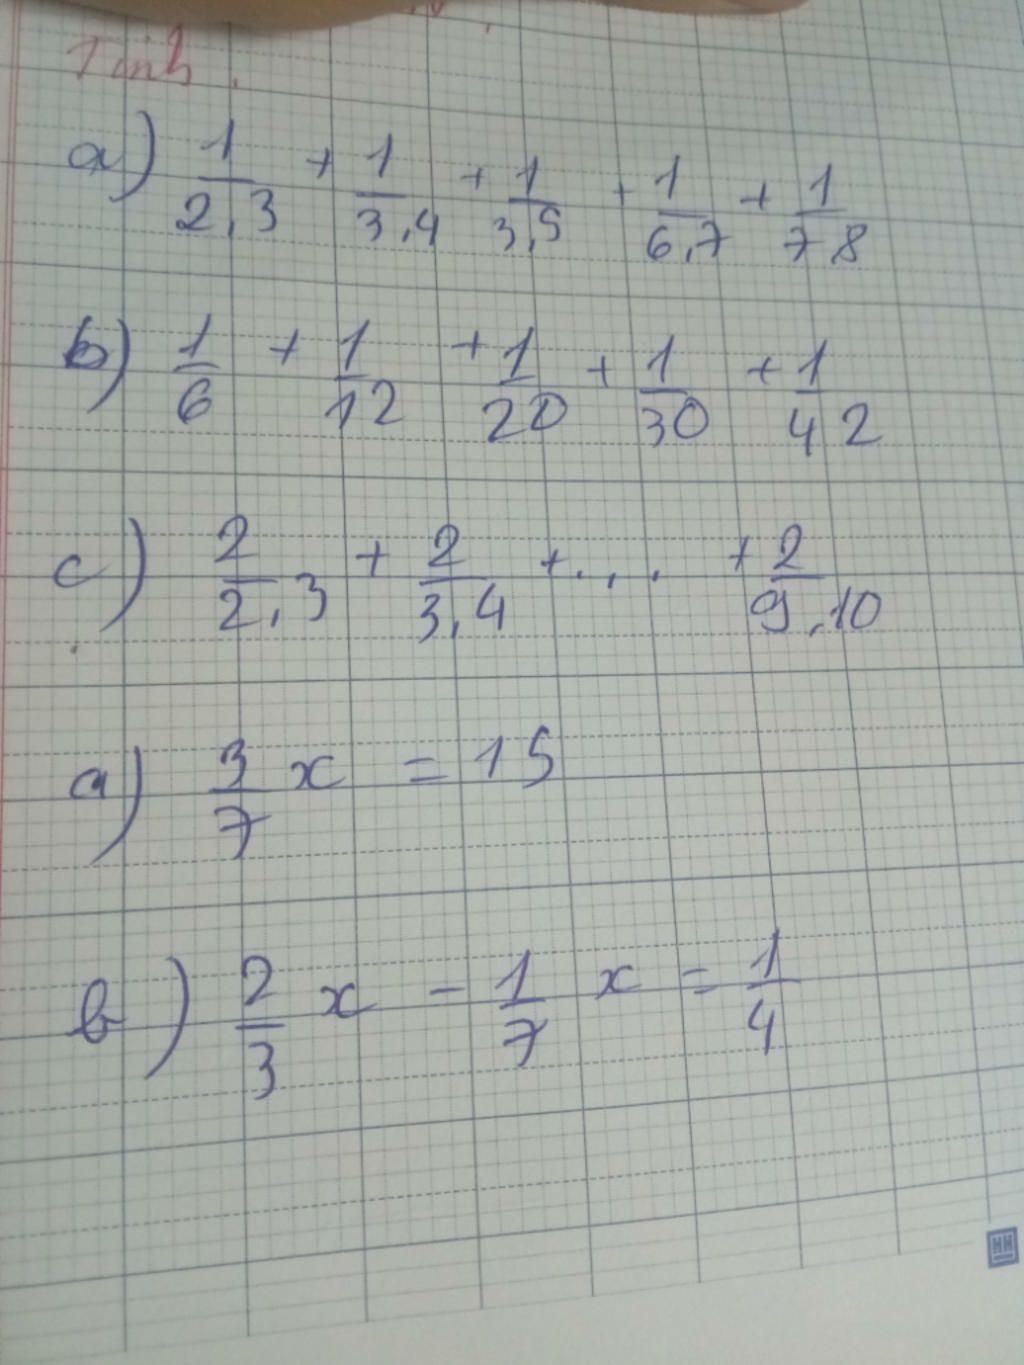 Tính.
a) 1/2.3 + 1/3.4 + 1/3.5 + 1/6.7 + 1/7.8
b) 1/6 + 1/12 + 1/20 + 1/30 + 1/42
c) 2/2.3 + 2/3.4 + ... + 2/9.10
a) 3/7 x = 15
b) 2/3 x - 1/7 x = 1/4
HH